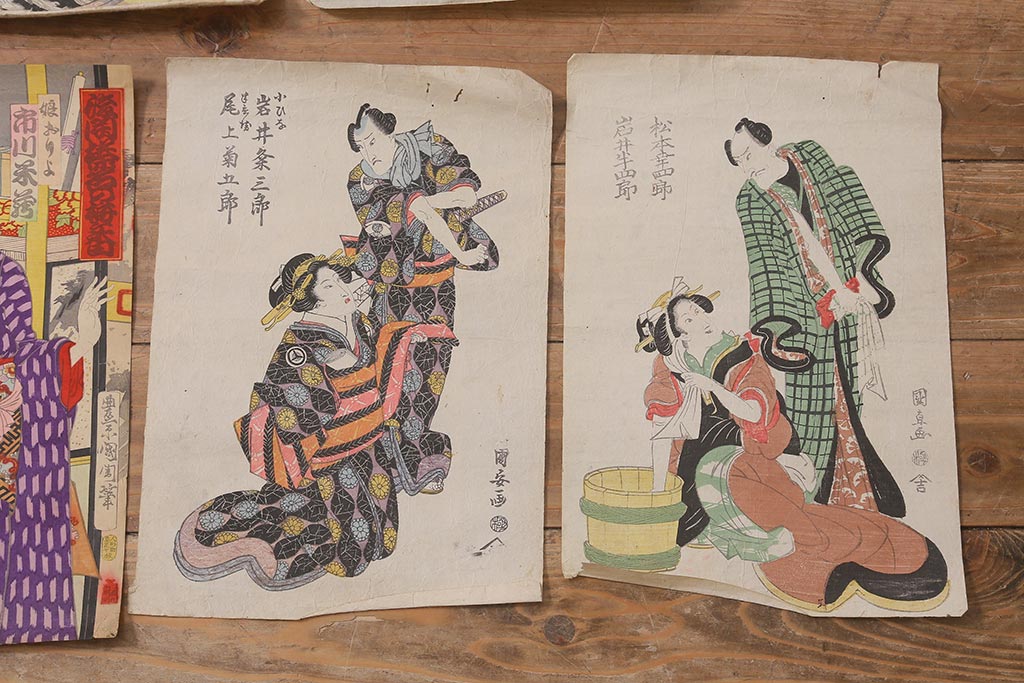 娘おりよ
豊原國周筆
小ひな
岩井粂三郎
尾上菊五郎
國安画
松本幸四郎
岩井半四郎
國貞画